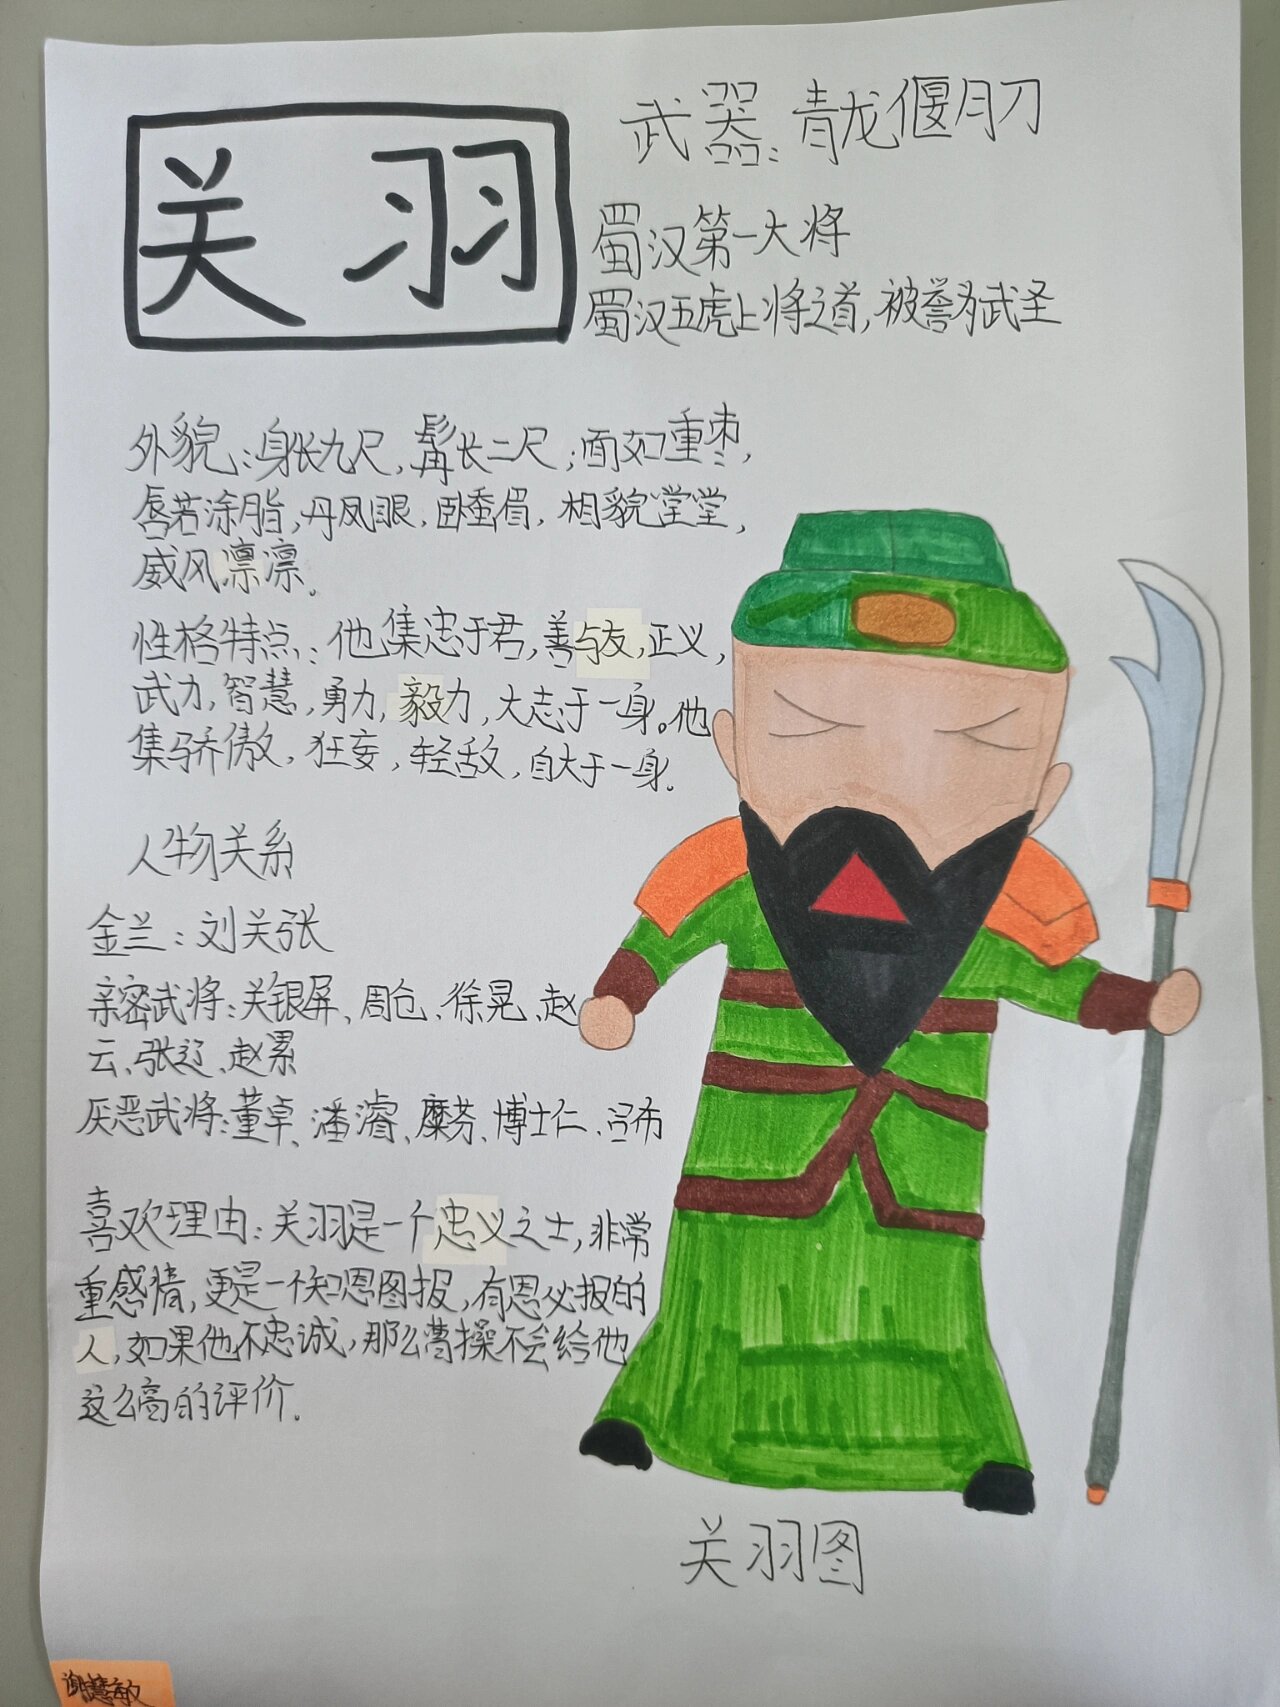 关羽
武器:青龙偃月刀
蜀汉第一大将
蜀汉五虎上将之首,被誉为武圣
外貌:身长九尺,髯长二尺;面如重枣,
唇若涂脂,丹凤眼,卧蚕眉,相貌堂堂,
威风凛凛。
性格特点:他集忠于君,善与友,正义,
武力,智慧,勇力,毅力,大志于一身。他
集骄傲,狂妄,轻敌,自大于一身。
人物关系
金兰:刘关张
亲密武将:关银屏、周仓、徐晃、赵
云、张辽、赵累
厌恶武将:董卓、潘濬、糜芳、博士仁、吕布
喜欢理由:关羽是一个忠义之士,非常
重感情,更是一个知恩图报,有恩必报的
人,如果他不忠诚,那么曹操不会给他
这么高的评价.
关羽图
谢慧敏